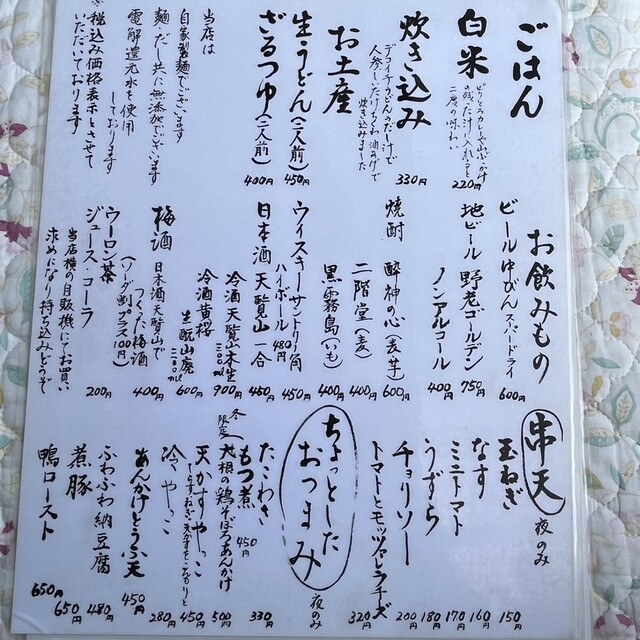 ごはん
白米 220円
炊き込み 330円
人参、しいたけ、ちくわ、油あげで
炊き込みました
お土産
生うどん（二人前） 450円
ざるつゆ（二人前） 400円
当店は
自家製麺でございます
麺・だし共に無添加でございます
電解還元水を使用
しております
※税込み価格表示とさせて
いただいております
お飲みもの
ビール中びん スーパードライ 600円
地ビール 野老ゴールデン 750円
ノンアルコール 400円
焼酎 酔神の心（麦・芋） 600円
二階堂（麦） 400円
黒霧島（いも） 400円
ウイスキー サントリー角 450円
ハイボール 480円
日本酒 天覧山 一合 450円
冷酒 天覧山本生 300ml 900円
冷酒 黄桜
生酛山廃 300ml 600円
梅酒 日本酒天覧山で
つくった梅酒 400円
（ソーダ割プラス100円）
ウーロン茶
ジュース・コーラ 200円
当店横の自販機にてお買い
求めになり持ち込みどうぞ
串天 夜のみ
玉ねぎ 150円
なす 160円
ミニトマト 170円
うずら 180円
チョリソー 200円
トマトとモッツァレラチーズ 320円
ちょっとした
おつまみ 夜のみ
たこわさ 330円
もつ煮 450円
冬限定 大根の鶏そぼろあんかけ 500円
天かすやっこ 450円
冷やっこ 280円
あんかけとうふ天 450円
ふわふわ納豆腐 480円
煮豚 650円
鴨ロースト 650円